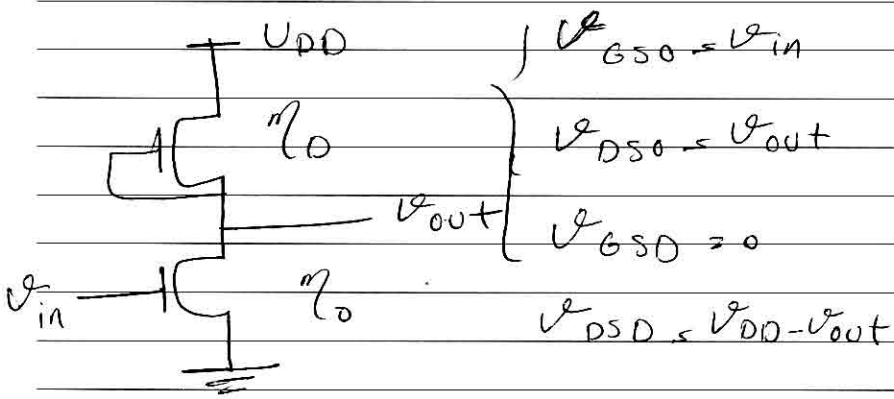 V_DD
M_D
V_out
V_in
M_0
V_GS0 = V_in
V_DS0 = V_out
V_GSD = 0
V_DSD = V_DD - V_out